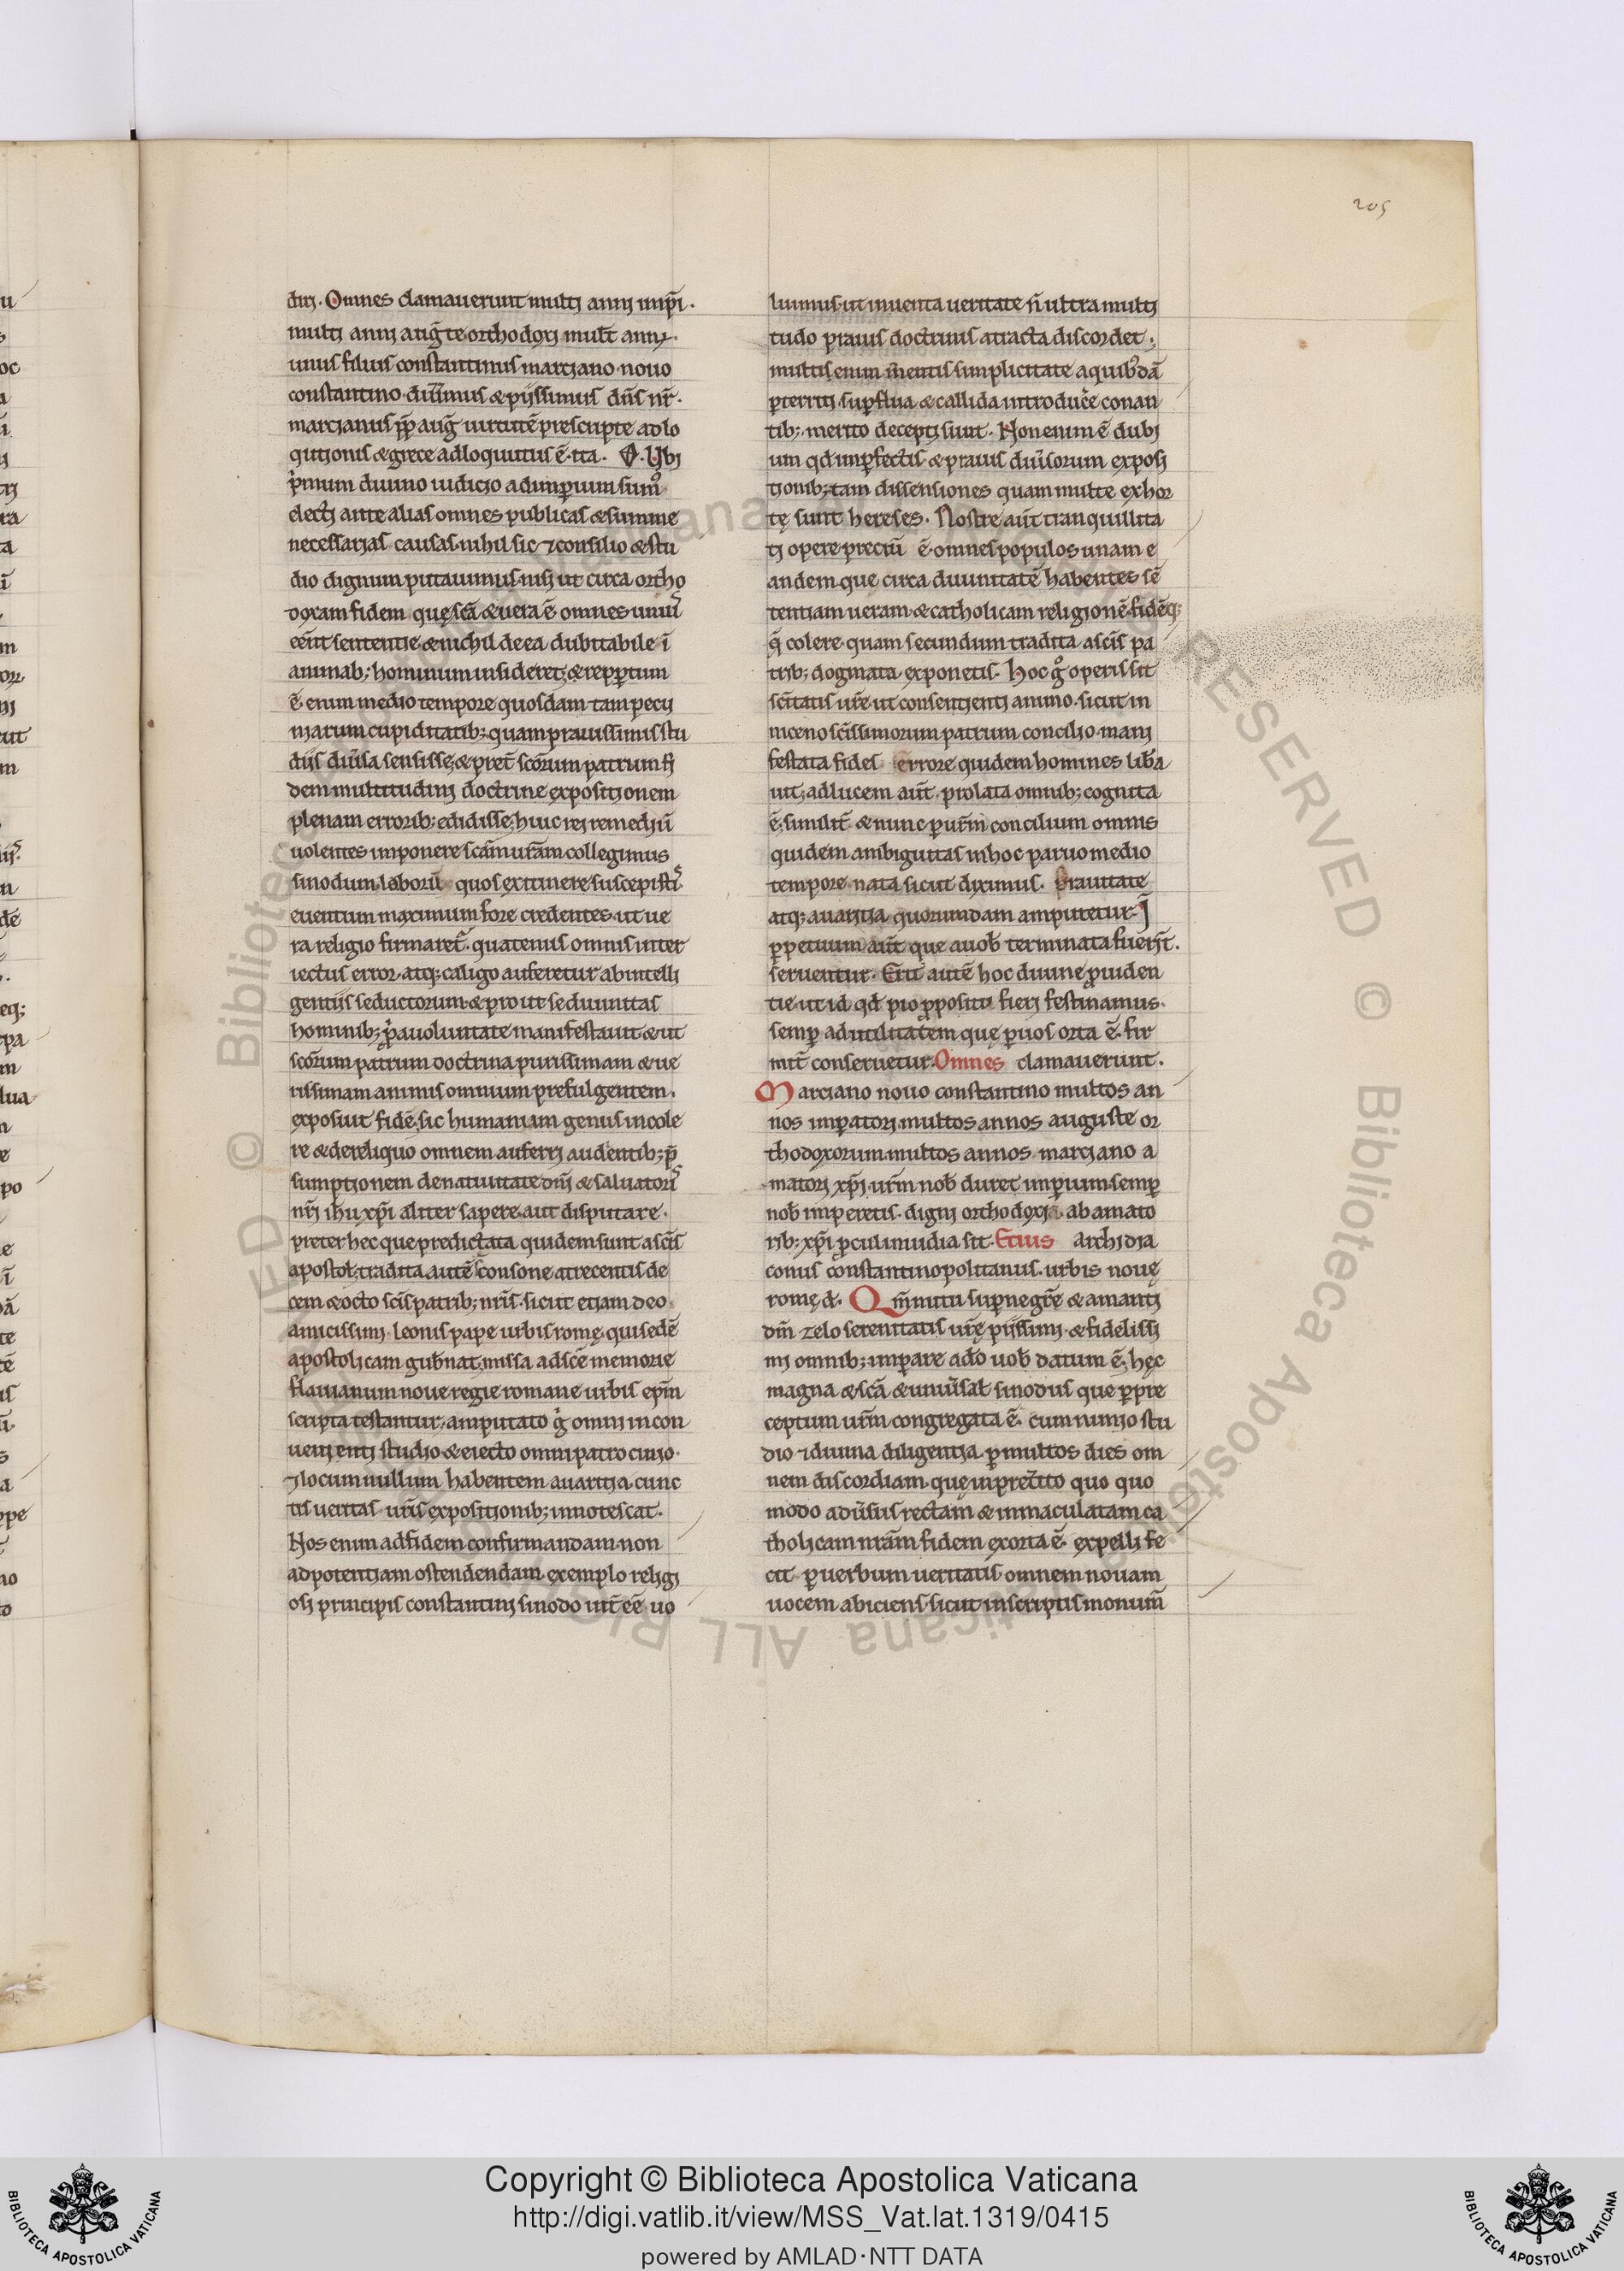 205
diri. Omnes clamauerunt multi anni imp̄ri.
multi anni auḡte. orthodoxi mult̄ anni.
unus filius constantinus marciano nouo
constantino. diuī̄mus & piissimus dn̄s nr̄.
marcianus p̄p̄ auḡ uirtutē prescripte adlo
qutionis & grece adloquutus ē. ita. Ubi
primum diuino iudicio ad imperium sum᷒
electi ante alias omnes publicas & summe
necessarias causas. nihil sic ⁊ consilio & stu
dio dignum putauimus. nisi ut circa ortho
doxam fidem que sc̄a & uera ē omnes uniu᷒
eēnt sententie. & nichil de ea dubitabile ī
animab; hominum insideret; & reppertum
ē enim medio tempore quosdam tam pecu
niarum cupiditatib; quam prauissimis stu
diis diuīsa sensisse, & pret̄ sc̄orum patrum fi
dem multitudini doctrine expositionem
plenam errorib; edidisse, huic rei remediū
uolentes imponere sc̄am ur̄am collegimus
sinodum. laborū quos extinere suscepistis
euentum maximum fore credentes. ut ue
ra religio firmaret᷒. quatenus omnis inter
iectus error. atq; caligo auferetur ab intelli
gentiis seductorum. & prout se diuinitas
hominib; p̄a uoluntate manifestauit & ut
sc̄orum patrum doctrina purissimam & ue
rissimam animis omnium prefulgentem.
exposuit fidē, sic humanum genus incole
re & de reliquo omnem auferri audentib; p̄
sumptionem de natiuitate dn̄i & saluatoris
nr̄i ih̄u xp̄i aliter sapere. aut disputare.
preter hec que predictata quidem sunt a sc̄is
apostol̄. tradita autē consone a trecentis de
cem & octo sc̄is patrib; nr̄is. sicut etiam deo
amicissimi leonis pape urbis rome. qui sedē
apostolicam gub̄nat, missa ad sc̄e memorie
flauianum noue regie romane urbis ep̄m
scripta testantur, amputato ḡ omni incon
uenienti studio & eiecto omni patrocinio.
⁊ locum nullum habentem auaritia. cunc
tis ueritas ur̄is expositionib; innotescat.
Nos enim ad fidem confirmandam non
ad potentiam ostendendam. exemplo religi
osi principis constantini sinodo int̄ eē uo
luimus. ut inuenta ueritate n̄ ultra multi
tudo prauis doctrinis atracta discordet.;
multis enim m̄entis simplicitate a quib᷒dā
perterriti superflua & callida introduc̄e conan
tib; merito decepti sunt. Non enim ē dubi
um qd̄ imperfectis & prauis diuīsorum exposi
tionib; tam dissensiones quam multe exhor
tę sunt hereses. Nostre aut̄ tranquillita
ti opere preciū ē omnes populos unam e
andem que circa diuinitatē habentes sē
tentiam ueram. & catholicam religionē. fidēq;
q̄ colere quam secundum tradita a sc̄is pa
trib; dogmata exponetis. Hoc ḡ operis sit
sc̄itatis ur̄e ut consentienti animo. sicut in
niceno sc̄issimorum patrum concilio mani
festata fides errore quidem homines lib̄a
uit, ad lucem aut̄ prolata omnib; cognita
ē, similit̄ & nunc per ur̄m concilium omnis
quidem ambiguitas in hoc paruo medio
tempore nata sicut diximus. Prauitate
atq; auaritia quorundam amputetur. Ī
perpetuum aut̄ que a uob̄ terminata fuer̄it.
seruentur. Erit autē hoc diuine prouiden
tie. ut id qd̄ pio proposito fieri festinamus.
semper ad utilitatem que per uos orta ē. fir
mit̄ conseruetur. Omnes clamauerunt.
Marciano nouo constantino multos an
nos imperatori multos annos auguste or
thodoxorum. multos annos marciano a
matori xp̄i ur̄m nob̄ duret imperium. semper
nob̄ imperetis. digni orthodoxia. ab amato
rib; xp̄i procul inuidia sit. Etius archidia
conus constantinopolitanus. urbis nouę
romę d̄. Qm̄ nutu superne gr̄e & amanti
dm̄ zelo serenitatis ur̄ę piissimi & fidelissi
mi omnib; imperare a dō uob̄ datum ē; hęc
magna & sc̄a & uniūsal̄ sinodus que per pre
ceptum ur̄m congregata ē. cum nimio stu
dio ⁊ diuina diligentia per multos dies om
nem discordiam. que in preterito quo quo
modo aduīsus rectam & immaculatam ca
tholicam nr̄am fidem exorta ē. expelli fe
cit per uerbum ueritatis. omnem nouam
uocem abiciens. sicut in scriptis monum̄
Copyright © Biblioteca Apostolica Vaticana
http://digi.vatlib.it/view/MSS_Vat.lat.1319/0415
powered by AMLAD·NTT DATA
BIBLIOTECA APOSTOLICA VATICANA
BIBLIOTECA APOSTOLICA VATICANA